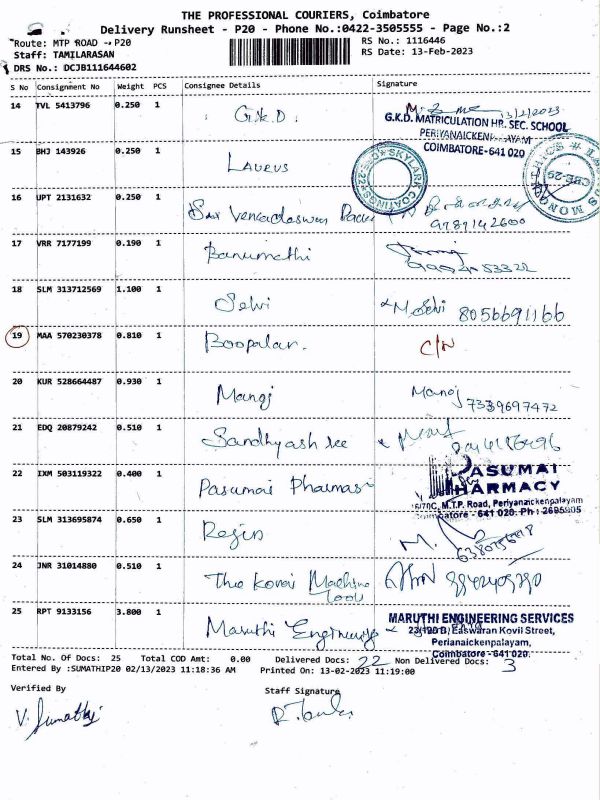 THE PROFESSIONAL COURIERS, Coimbatore
Delivery Runsheet - P20 - Phone No.:0422-3505555 - Page No.:2
Route: MTP ROAD - P20 RS No.: 1116446
Staff: TAMILARASAN RS Date: 13-Feb-2023
DRS No.: DCJB111644602
S No Consignment No Weight PCS Consignee Details Signature
14 TVL 5413796 0.250 1 G.K.D. 13/2/2023
G.K.D. MATRICULATION HR. SEC. SCHOOL
COIMBATORE - 641 020
15 BHJ 143926 0.250 1 Laurus
SKYLARK COATINGS
16 UPT 2131632 0.250 1
9789142600
17 VRR 7177199 0.190 1 Banumathi
18 SLM 313712569 1.100 1 Selvi M. Selvi 8056691166
19 MAA 570230378 0.810 1 Boopalan. C/N
20 KUR 528664487 0.930 1 Manoj Manoj 7339697472
21 EDQ 20879242 0.510 1 Sandhyashree
22 IXM 503119322 0.400 1 Pasumai PASUMAI
PHARMACY
M.T.P. Road, Periyanaickenpalayam
23 SLM 313695874 0.650 1 Regin
24 JNR 31014880 0.510 1 The Kovai Machine
Tools
25 RPT 9133156 3.800 1 Maruthi MARUTHI ENGINEERING SERVICES
Easwaran Kovil Street,
Perianaickenpalayam,
Coimbatore - 641 020.
Total No. Of Docs: 25 Total COD Amt: 0.00 Delivered Docs: 22 Non Delivered Docs: 3
Entered By :SUMATHIP20 02/13/2023 11:18:36 AM Printed On: 13-02-2023 11:19:00
Verified By Staff Signature
V. Sumathi